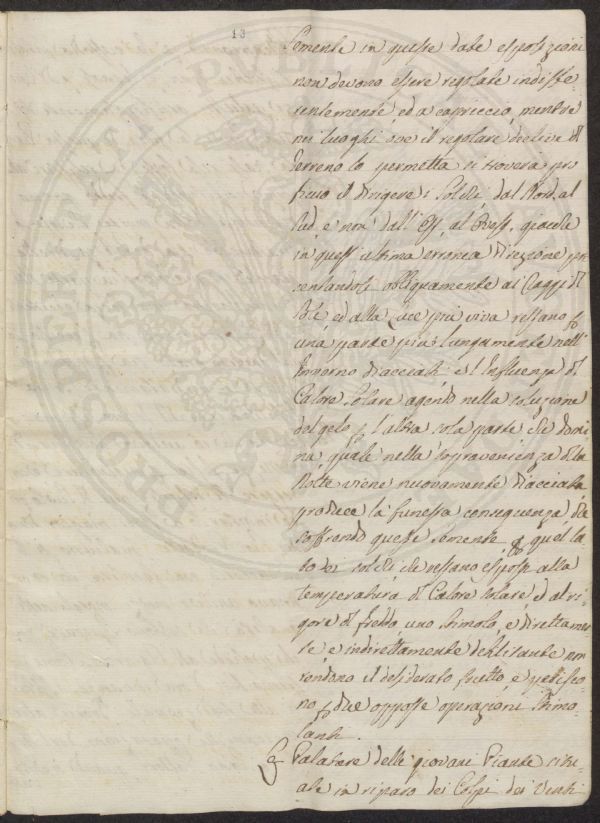 13
Semente in queste date esposizioni
non devono essere regolate indiffe
rentemente ed a capriccio, mentre
nei luoghi ove il regolare declive di
terreno lo permetta si troverà pro
ficuo il dirigere i Solchi dal Nord al
Sud e non dall' Est al Ovest, giacché
in quest' ultima erronea direzione pre
sentandosi obliquamente ai Raggi di
Sole ed alla Luce più viva restano
una parte più lungamente nell'
Inverno diacciati e l' Influenza di
Calore Solare agendo nella soluzione
del gelo l' altra sola parte che domi
na quale nella sopravenienza della
Notte viene nuovamente diacciata
produce la funesta conseguenza che
soffrendo queste Semente quel la
to de solchi che restano esposti alla
temperatura di Calore Solare, ed al ri
gore di freddo uno stimolo, e direttamen
te, e indirettamente debilitante non
rendono il desiderato frutto, e periscono
no due opposte operazioni stimo
lanti.
delle giovani Piante
in riparo dei Colpi dei Venti
PROSPERITATI PUBLICAE